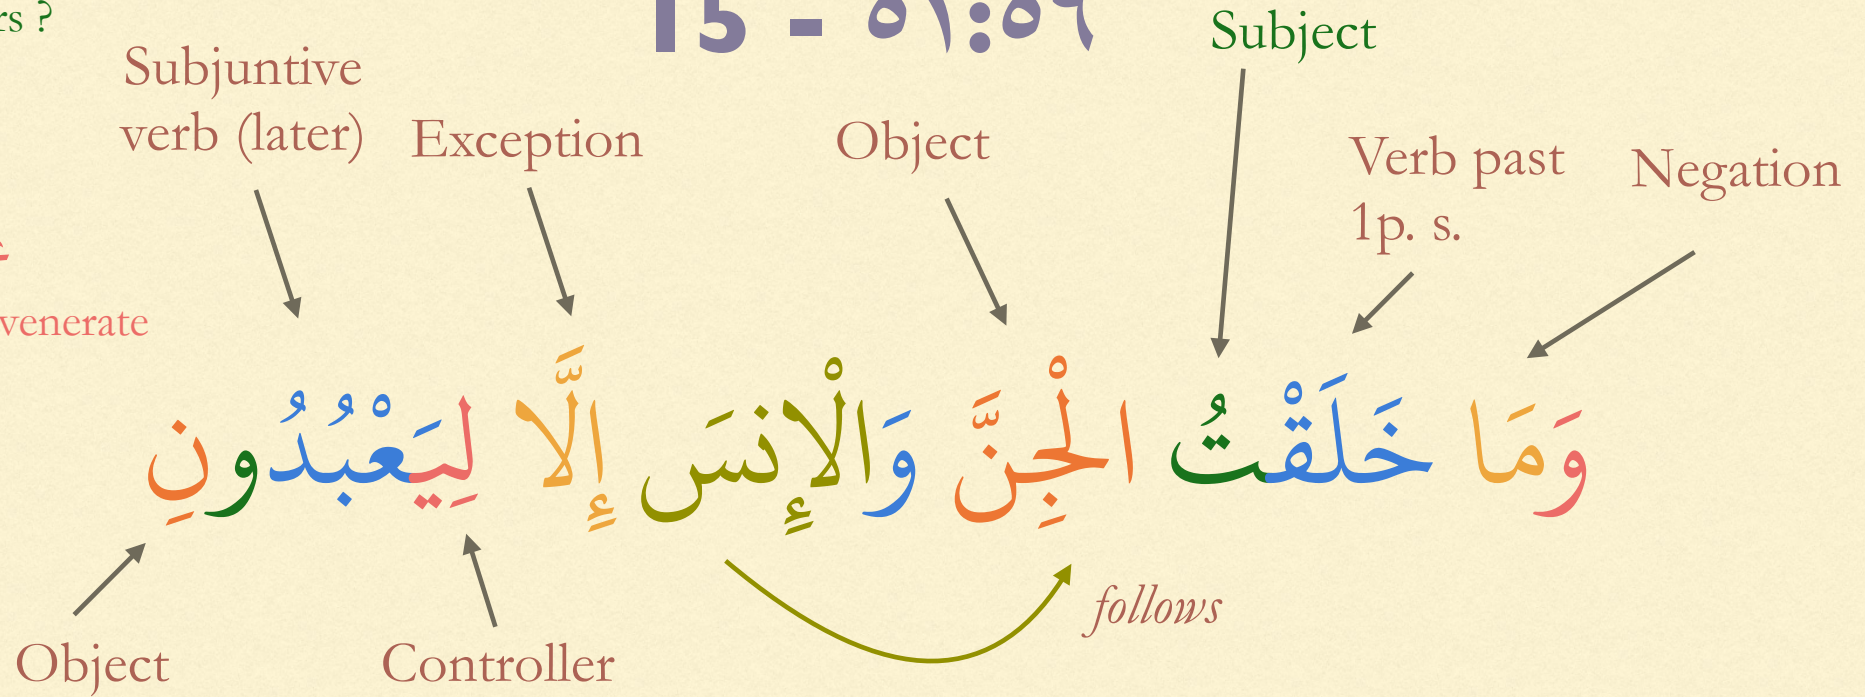 rs ?
15 - ٥١:٥٦
Subject
Subjuntive
verb (later)
Exception
Object
Verb past
1p. s.
Negation
venerate
وَمَا خَلَقْتُ الْجِنَّ وَالْإِنسَ إِلَّا لِيَعْبُدُونِ
follows
Object
Controller